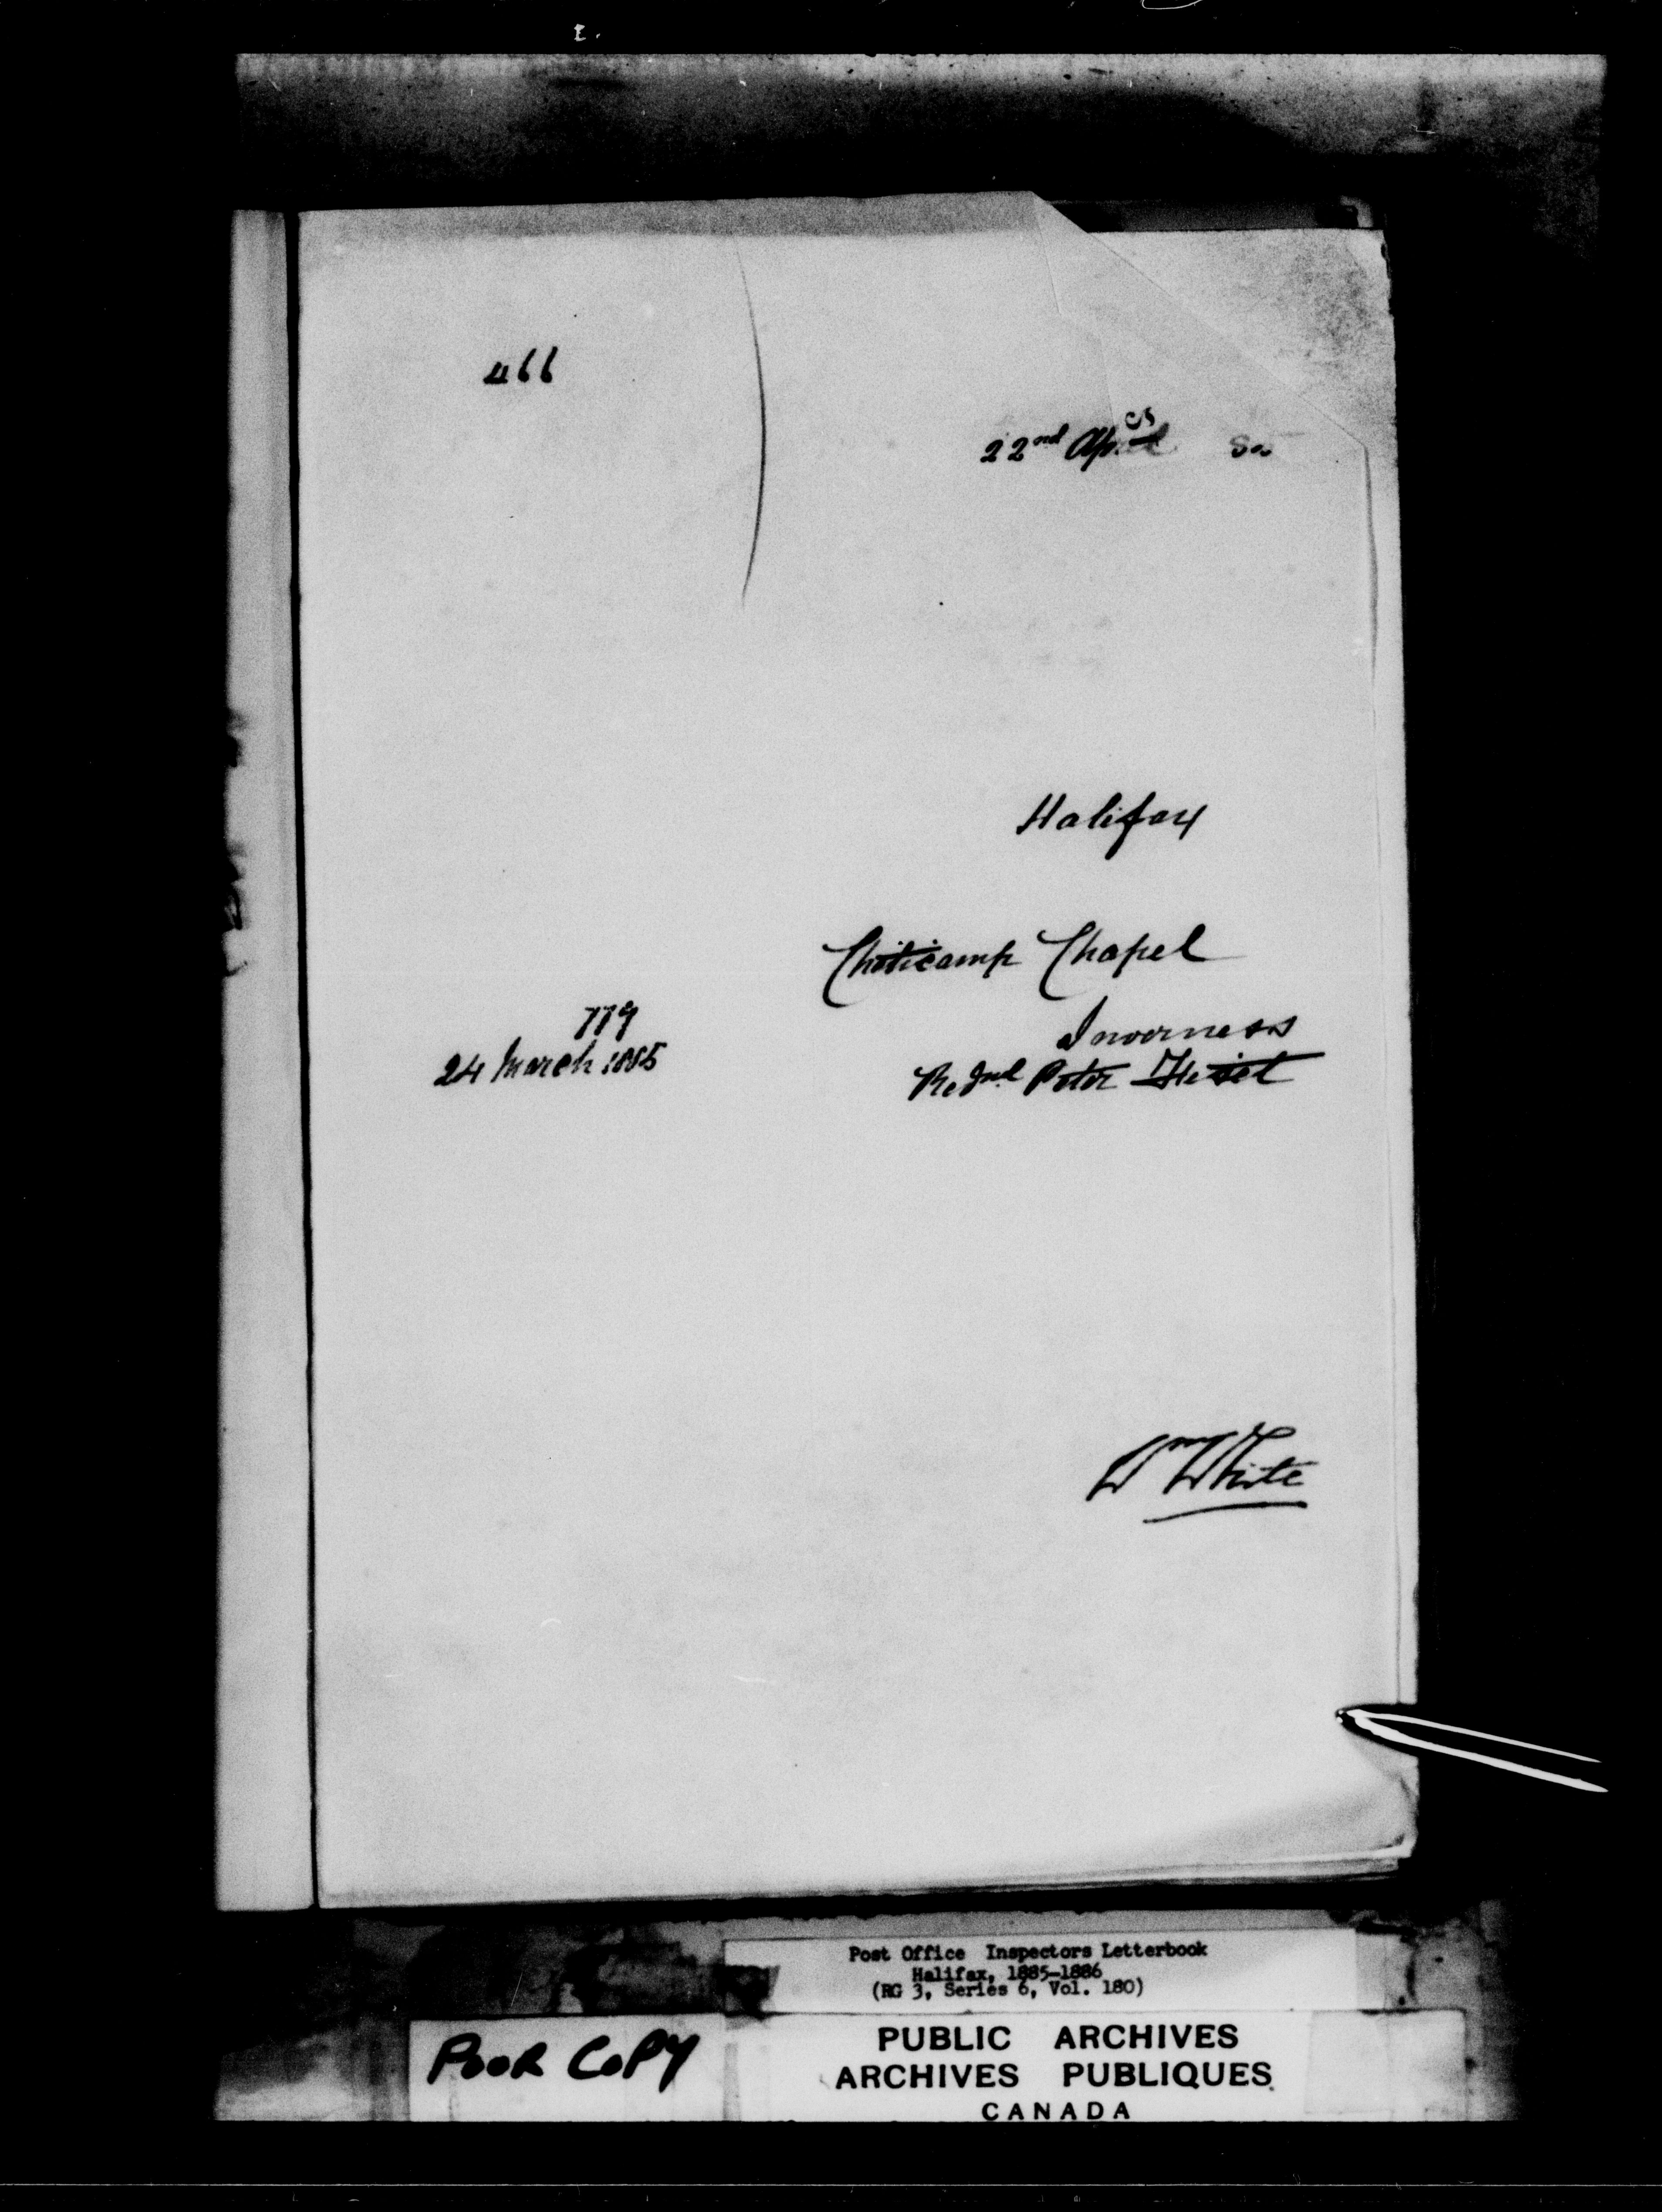 466
22nd April
Halifax
Cheticamp Chapel
779
Inverness
24 March 1885
Revd Peter
Wm White
Post Office Inspectors Letterbook
Halifax, 1885-1886
(RG 3, Series 6, Vol. 180)
POOR COPY
PUBLIC ARCHIVES
ARCHIVES PUBLIQUES
CANADA